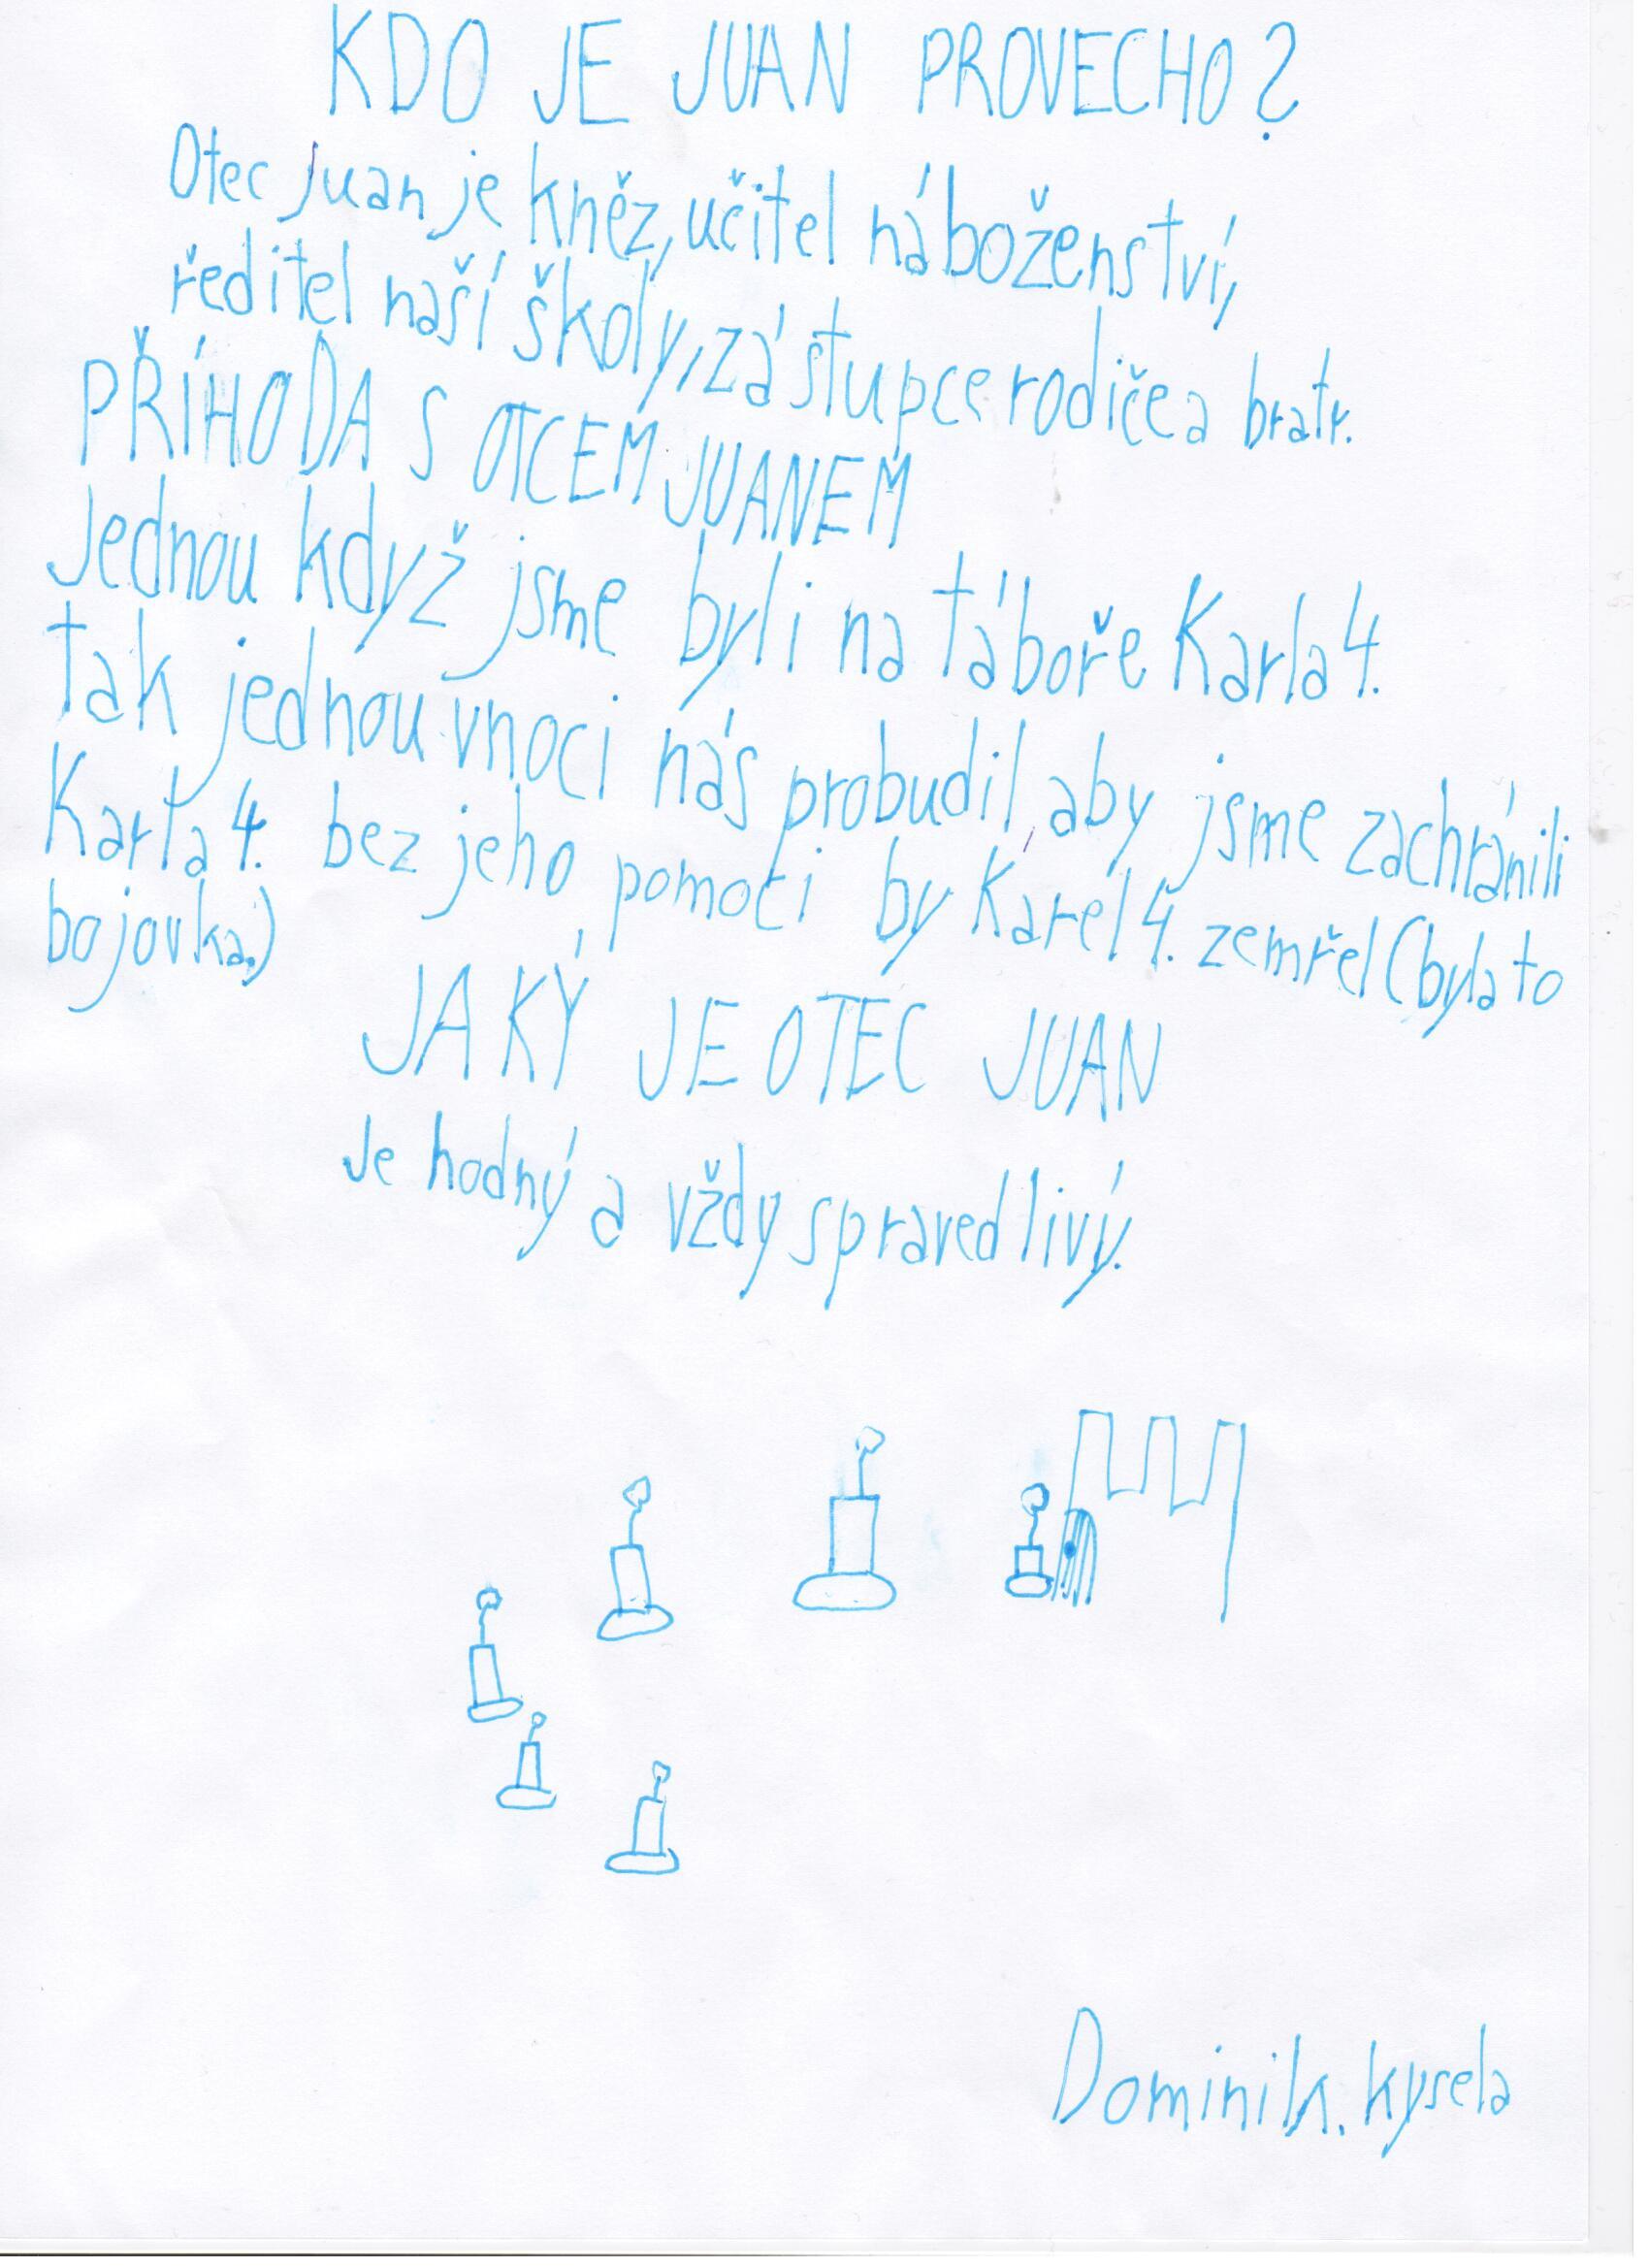 KDO JE JUAN PROVECHO?
Otec Juan je kněz, učitel náboženství,
ředitel naší školy, zástupce rodiče a bratr.
PŘÍHODA S OTCEM JUANEM
Jednou když jsme byli na táboře Karla 4.
tak jednou vnoci nás probudil, aby jsme zachránili
Karla 4. bez jeho pomoci by Karel 4. zemřel (byla to
bojovka.)
JAKÝ JE OTEC JUAN
Je hodný a vždy spravedlivý.
Dominik. kysela